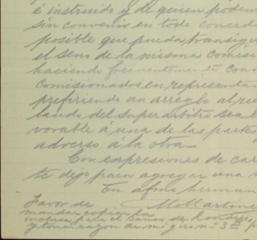 é instruido y de quien podem
sin convenio en todo conced
posible que pueda transigi
el seno de la misma comisi
haciendo frecuentemente con
comisionados en representa
prefiriendo un arreglo al re
tado del superárbitro sea
vorable a una de las partes
adverso á la otra.
Con expresiones de car
te dejo para agregar una
Tu afmo. herman
Favor de